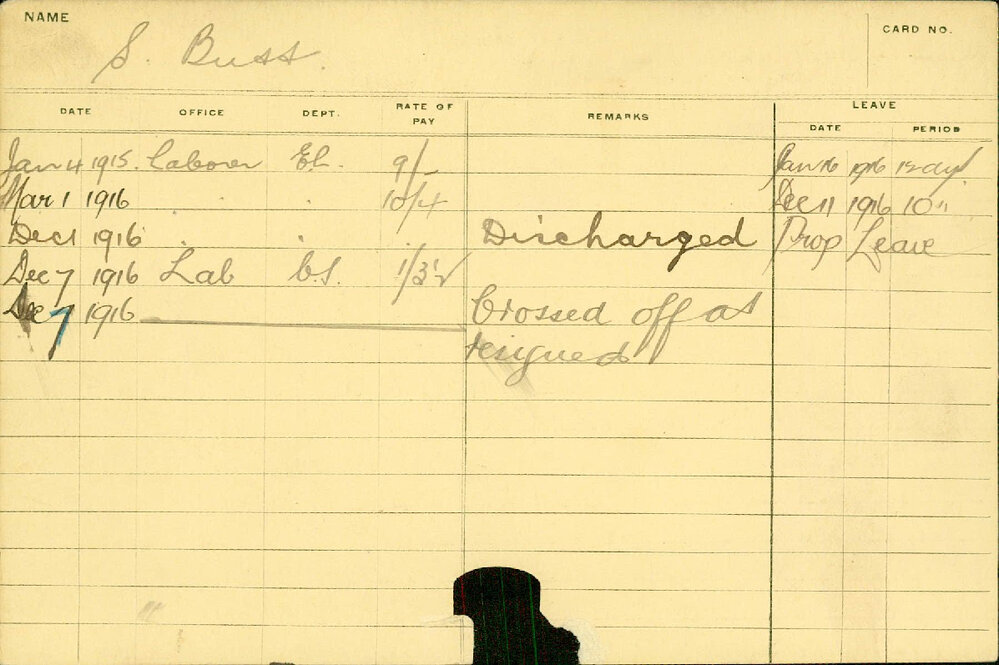 NAME
S. Buss.
CARD NO.
DATE OFFICE DEPT. RATE OF PAY REMARKS LEAVE
DATE PERIOD
Jan 4 1915. Laborer EL. 9/- Jan 16 1916 12 dys
Mar 1 1916 . . 10/4 Dec 11 1916 10 "
Dec 1 1916 . . Discharged Prop Leave
Dec 7 1916 Lab C.S. 1/3½
Dec 7 1916 Crossed off as
resigned